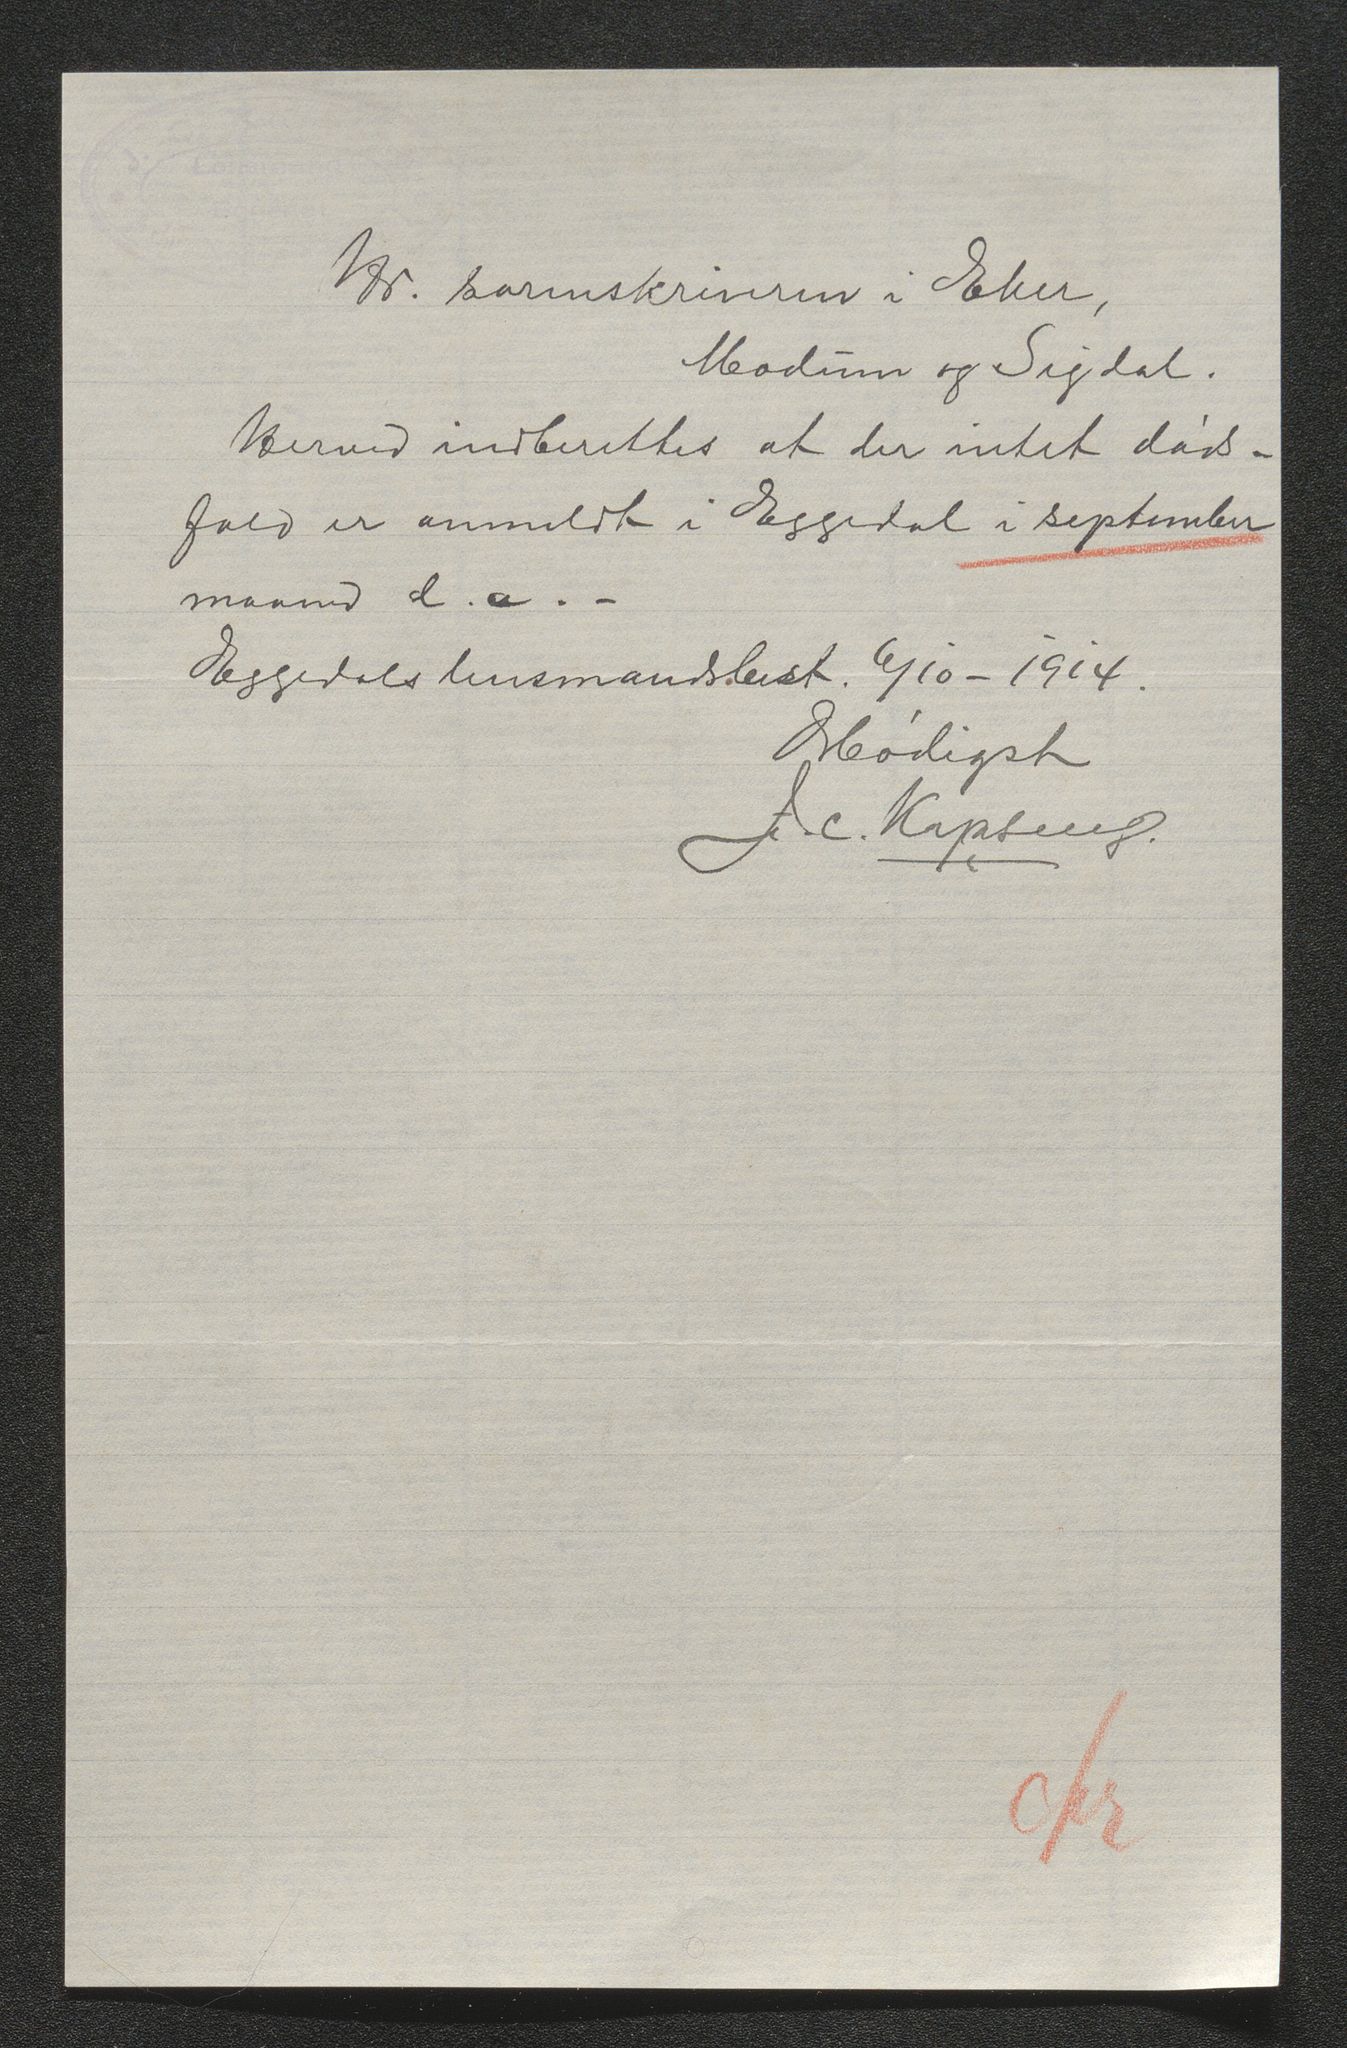 Hr. sorenskriveren i Eker,
Modum og Sigdal.
Herved indberettes at der intet døds-
fald er anmeldt i Eggedal i september
maaned d.a. -
Eggedals lensmandsbest. 6/10 - 1914.
Ærbødigst
J. C. Kopseng.